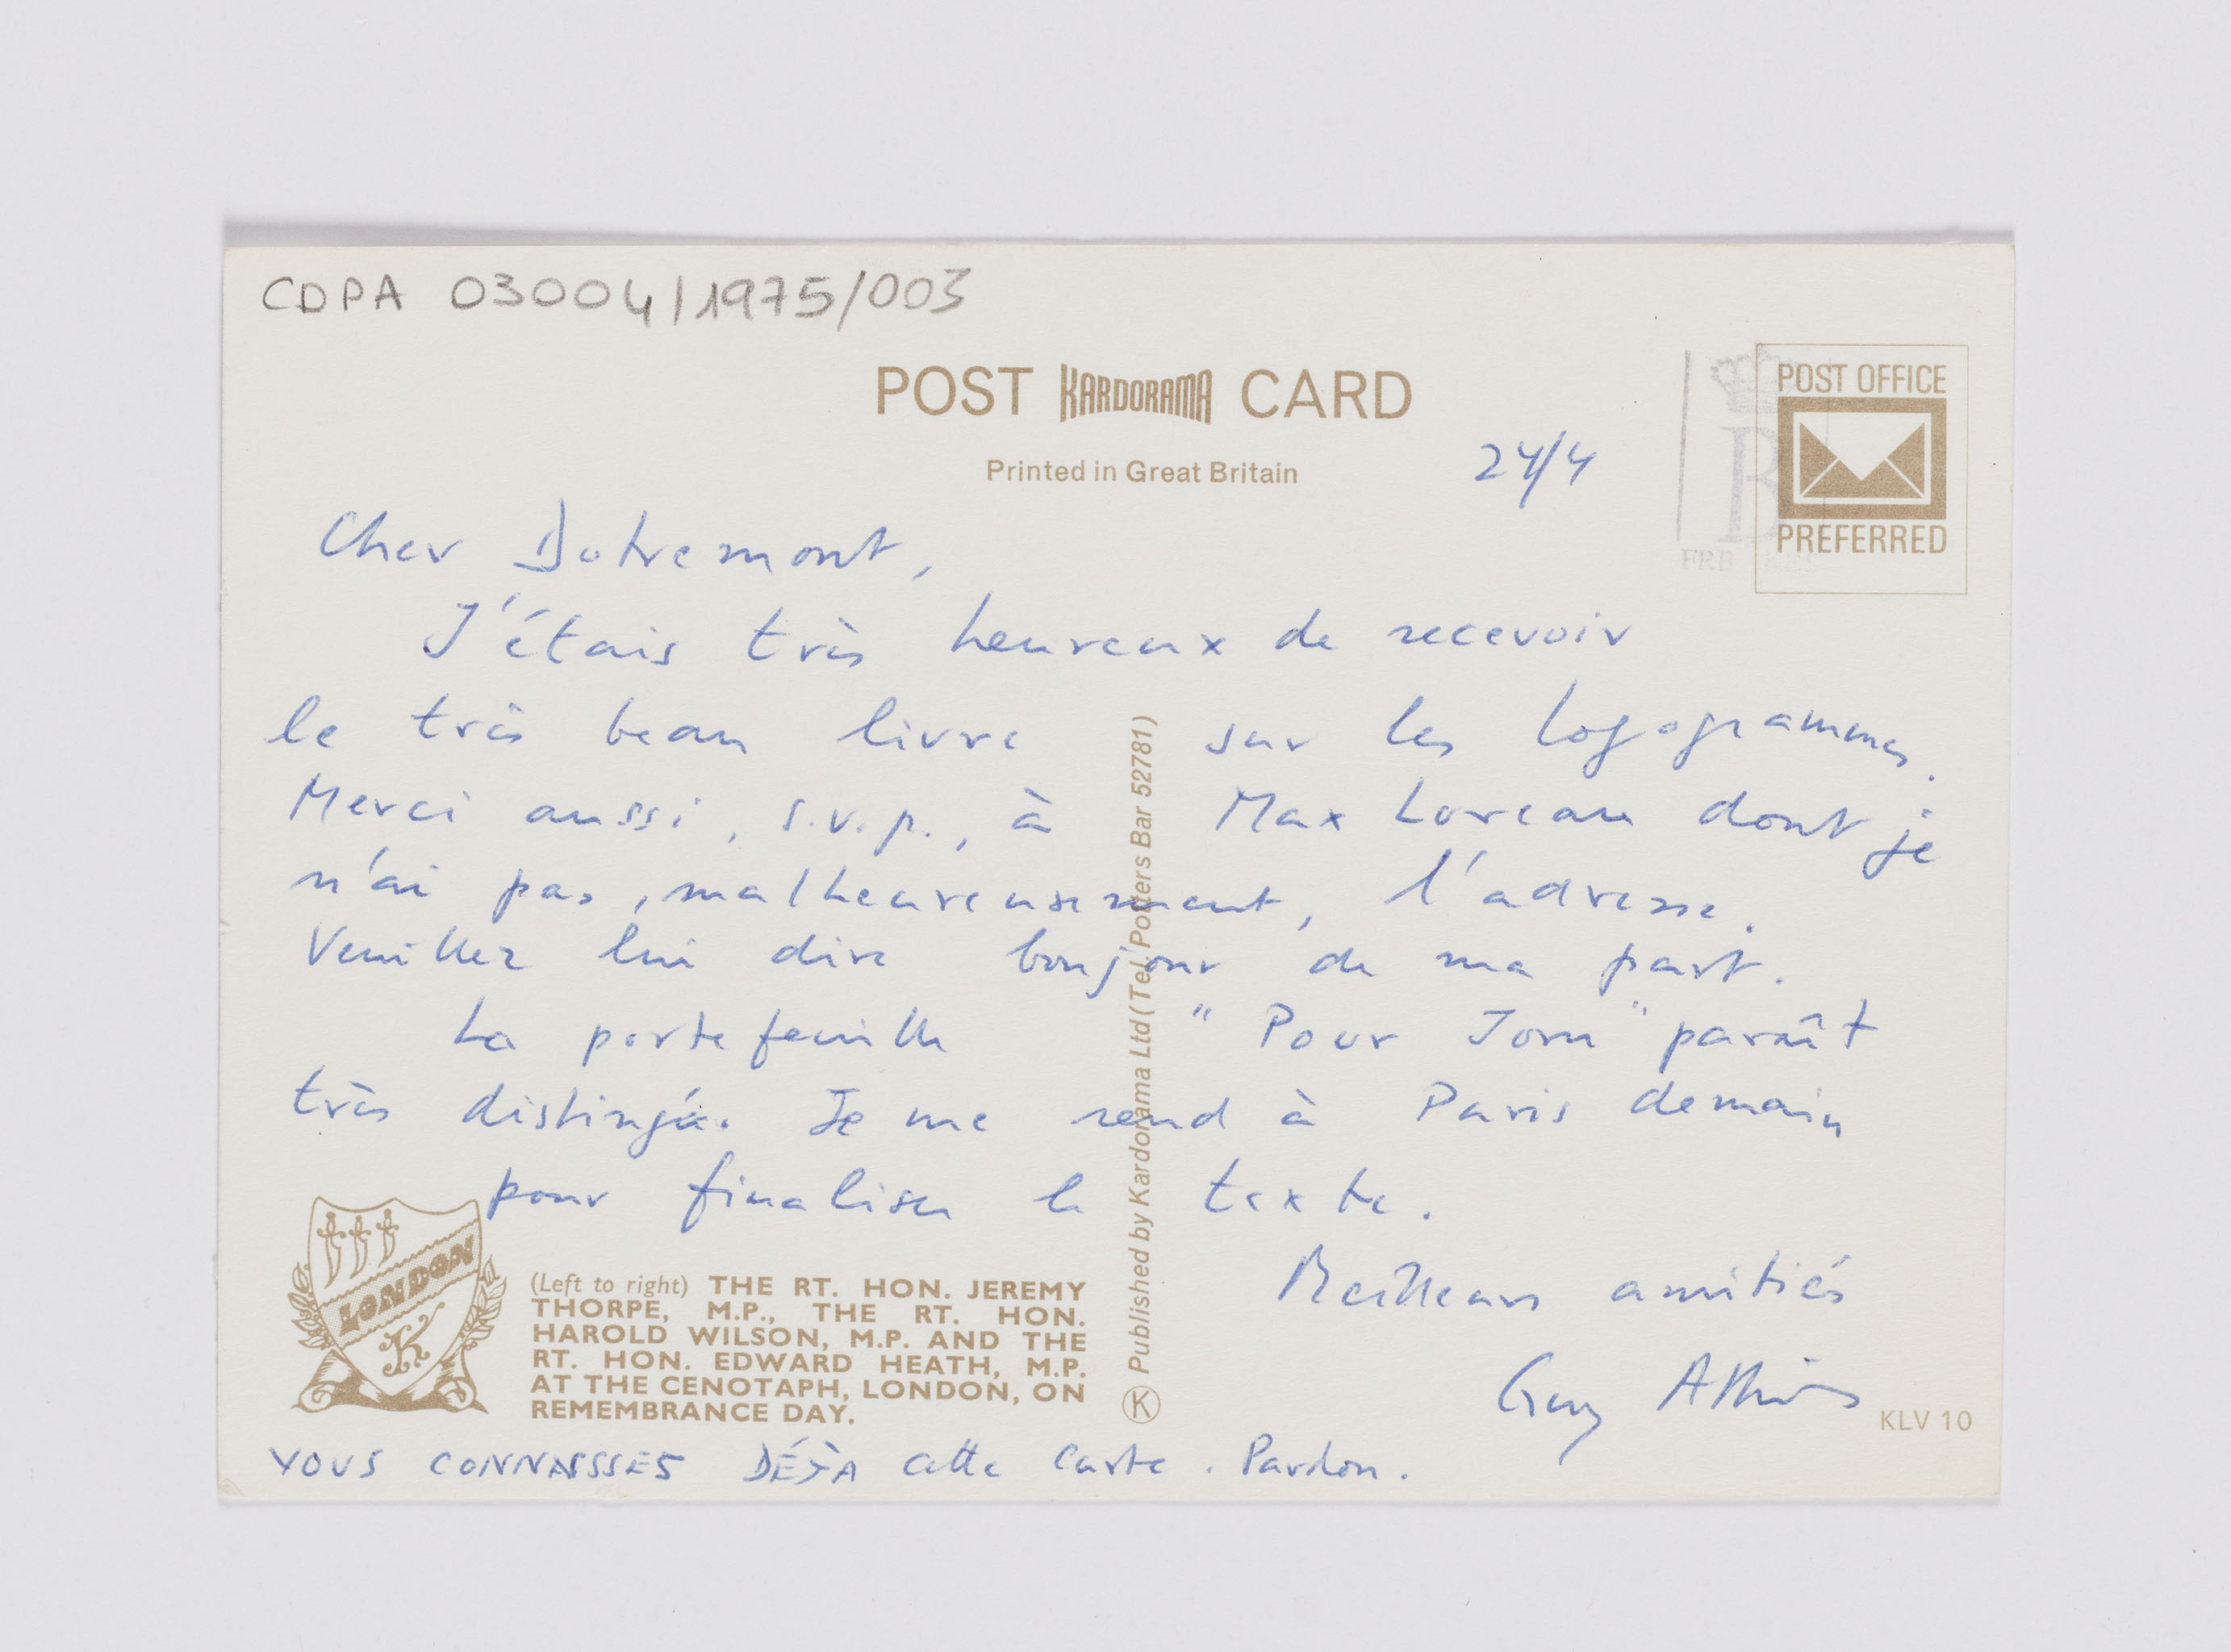 CDPA 03004/1975/003
POST KARDORAMA CARD
Printed in Great Britain
POST OFFICE
PREFERRED
B
24/4
Cher Dotremont,
J'étais très heureux de recevoir
le très beau livre sur les logogrammes.
Merci aussi, s.v.p., à Max Loreau dont je
n'ai pas, malheureusement, l'adresse.
Veuillez lui dire bonjour de ma part.
La portefeuille "Pour Jorn" paraît
très distingué. Je me rend à Paris demain
pour finaliser le texte.
Meilleurs amitiés
Guy Atkins
KLV 10
LONDON
K
(Left to right) THE RT. HON. JEREMY
THORPE, M.P., THE RT. HON.
HAROLD WILSON, M.P. AND THE
RT. HON. EDWARD HEATH, M.P.
AT THE CENOTAPH, LONDON, ON
REMEMBRANCE DAY.
K Published by Kardorama Ltd (Tel. Potters Bar 52781)
VOUS CONNAISSES DÉJA cette carte. Pardon.